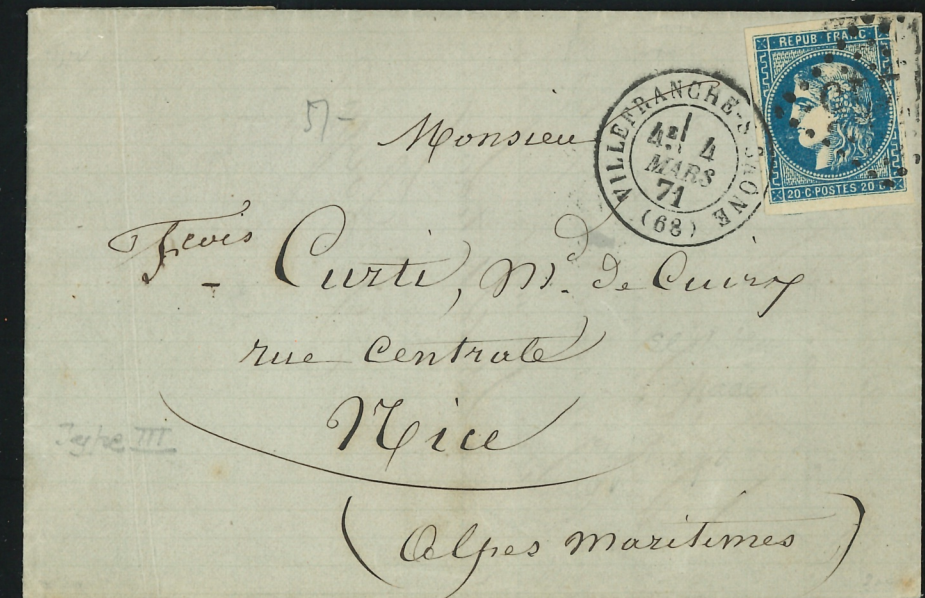 REPUB. FRANC.
20·C·POSTES 20·C
VILLEFRANCHE-S-SAÔNE
4E 4
MARS
71
(68)
5/-
Monsieur
Fcois Curti, Md. de Cuirs
rue centrale
Nice
(Alpes maritimes)
Type III